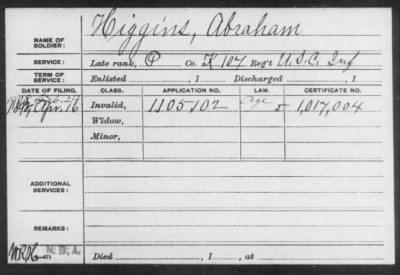 NAME OF SOLDIER: Higgins, Abraham
SERVICE: Late rank, P Co. K 107 Reg't U.S.C. Inf
TERM OF SERVICE: Enlisted , 1 Discharged , 1
DATE OF FILING. CLASS. APPLICATION NO. LAW. CERTIFICATE NO.
Apr. 16 Invalid, 1105102 Age 1,017,004
Widow,
Minor,
ADDITIONAL SERVICES:
REMARKS:
N.D.A.
3-671 Died , 1 , at